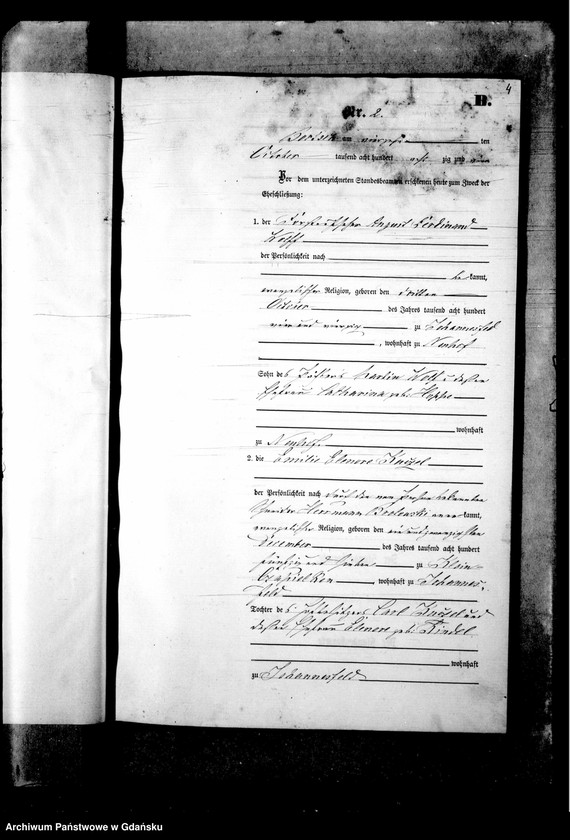 4
B.
Nr. 2.
am ten
October tausend acht hundert zig und
Vor dem unterzeichneten Standesbeamten erschienen heute zum Zweck der
Eheschließung:
1. der August Ferdinand
Wolff
der Persönlichkeit nach
be kannt,
evangelischer Religion, geboren den dritten
October des Jahres tausend acht hundert
vier und vierzig zu Johannesfeld
, wohnhaft zu Neuhof
Sohn des Martin Wolff u. dessen
Ehefrau Catharina geb. Hoppe
wohnhaft
zu Neuhof.
2. die Emilie Elenore
der Persönlichkeit nach durch den von Person bekannten
Herrmann kannt,
evangelischer Religion, geboren den ein und zwanzigsten
December des Jahres tausend acht hundert
fünfzig und sieben zu Klein
, wohnhaft zu Johannes-
feld
Tochter des Carl und
dessen Ehefrau Elenore geb.
wohnhaft
zu Johannesfeld
Archiwum Państwowe w Gdańsku